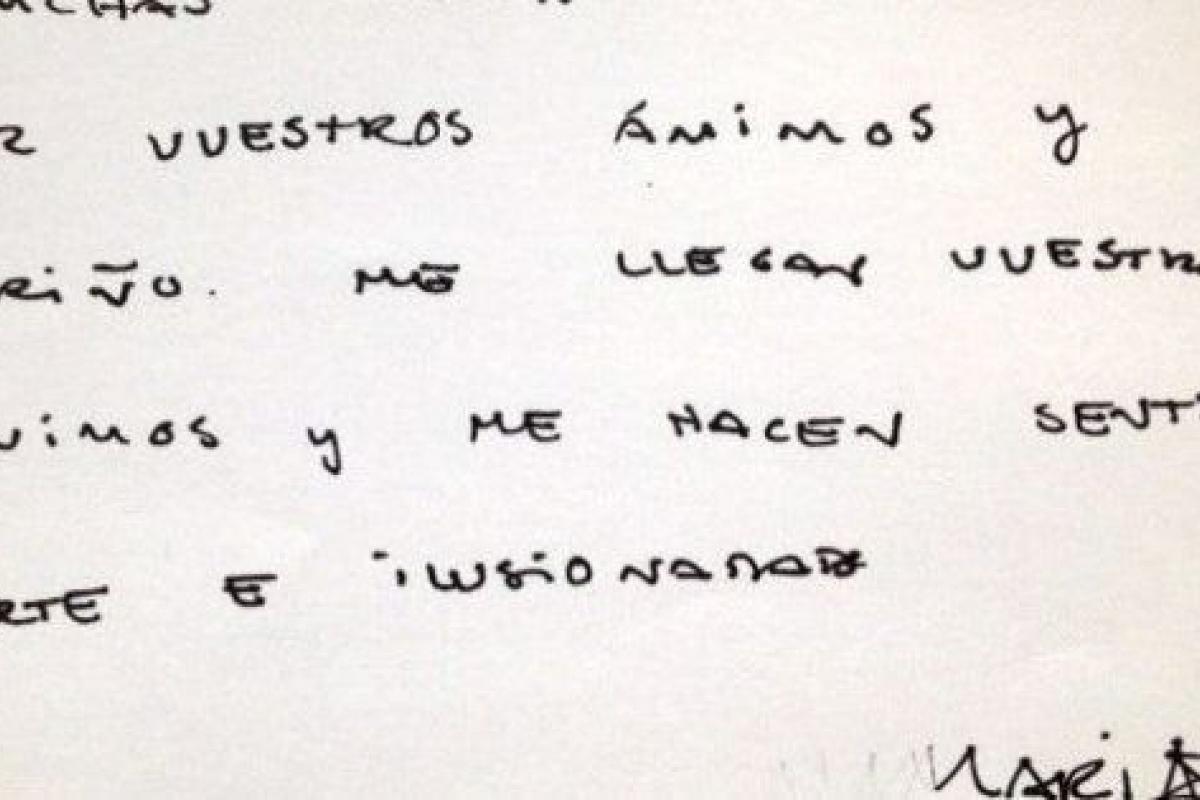 UCHAS
R VUESTROS ÁNIMOS Y
RIÑO. ME LLEGAN VUESTR
NIMOS Y ME HACEN SENT
RTE E ILUSIONADA
MARIA